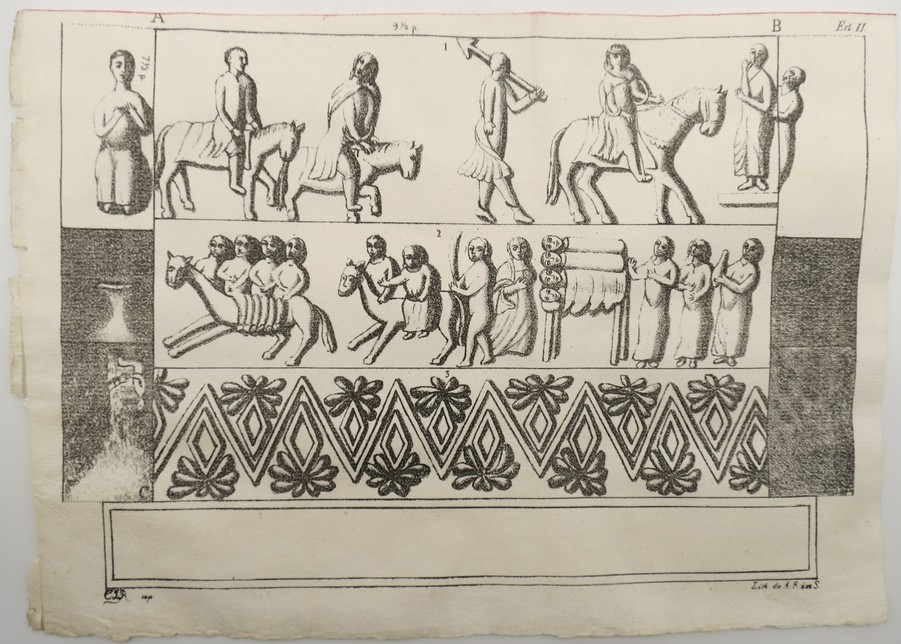 A
3 ½ p.
B
Est. II
7/3 p.
1
2
3
C
Lith de A. R. em S.